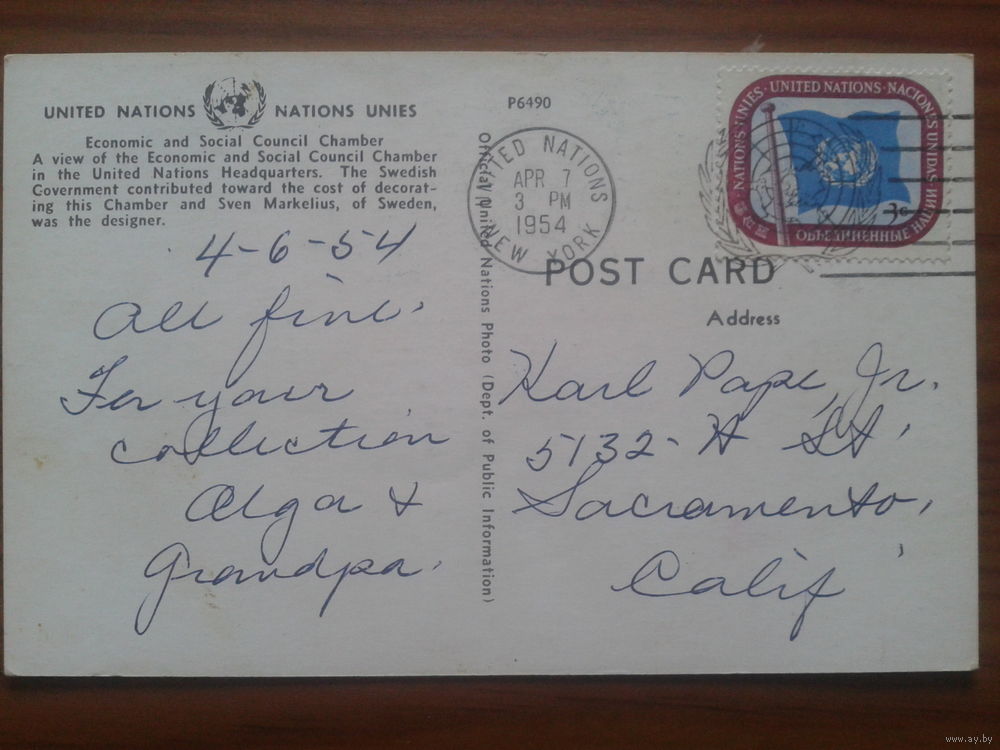 UNITED NATIONS NATIONS UNIES
Economic and Social Council Chamber
A view of the Economic and Social Council Chamber
in the United Nations Headquarters. The Swedish
Government contributed toward the cost of decorat-
ing this Chamber and Sven Markelius, of Sweden,
was the designer.
4-6-54
All fine.
For your
collection
Olga &
Grandpa.
Official United Nations Photo (Dept. of Public Information)
P6490
UNITED NATIONS
APR 7
3 PM
1954
NEW YORK
NATIONS UNIES · UNITED NATIONS · NACIONES UNIDAS
ОБЪЕДИНЕННЫЕ НАЦИИ
3c
POST CARD
Address
Karl Pape, Jr.
5132 - H St.
Sacramento,
Calif
www.ay.by